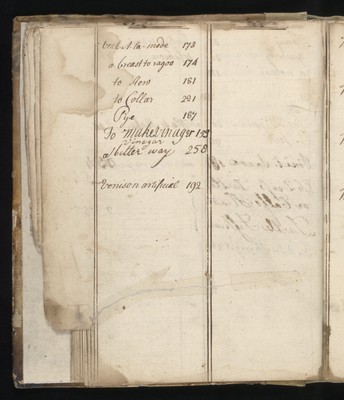 Veal A-la-mode 173
a breast to ragoo 174
to stew 181
to Collar 221
Pye 187
To make vinager 195
vinegar
a better way 258
Venison artificial 192